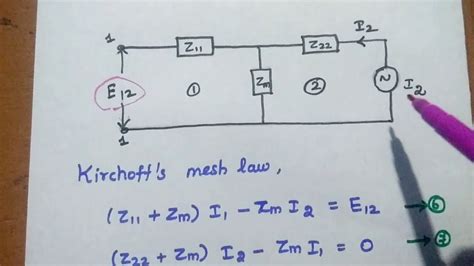 I2
1 Z11 Z22
E12 ① Zm ② ~ I2
1
Kirchoff's mesh law,
(Z11 + Zm) I1 - Zm I2 = E12 → ⑥
(Z22 + Zm) I2 - Zm I1 = 0